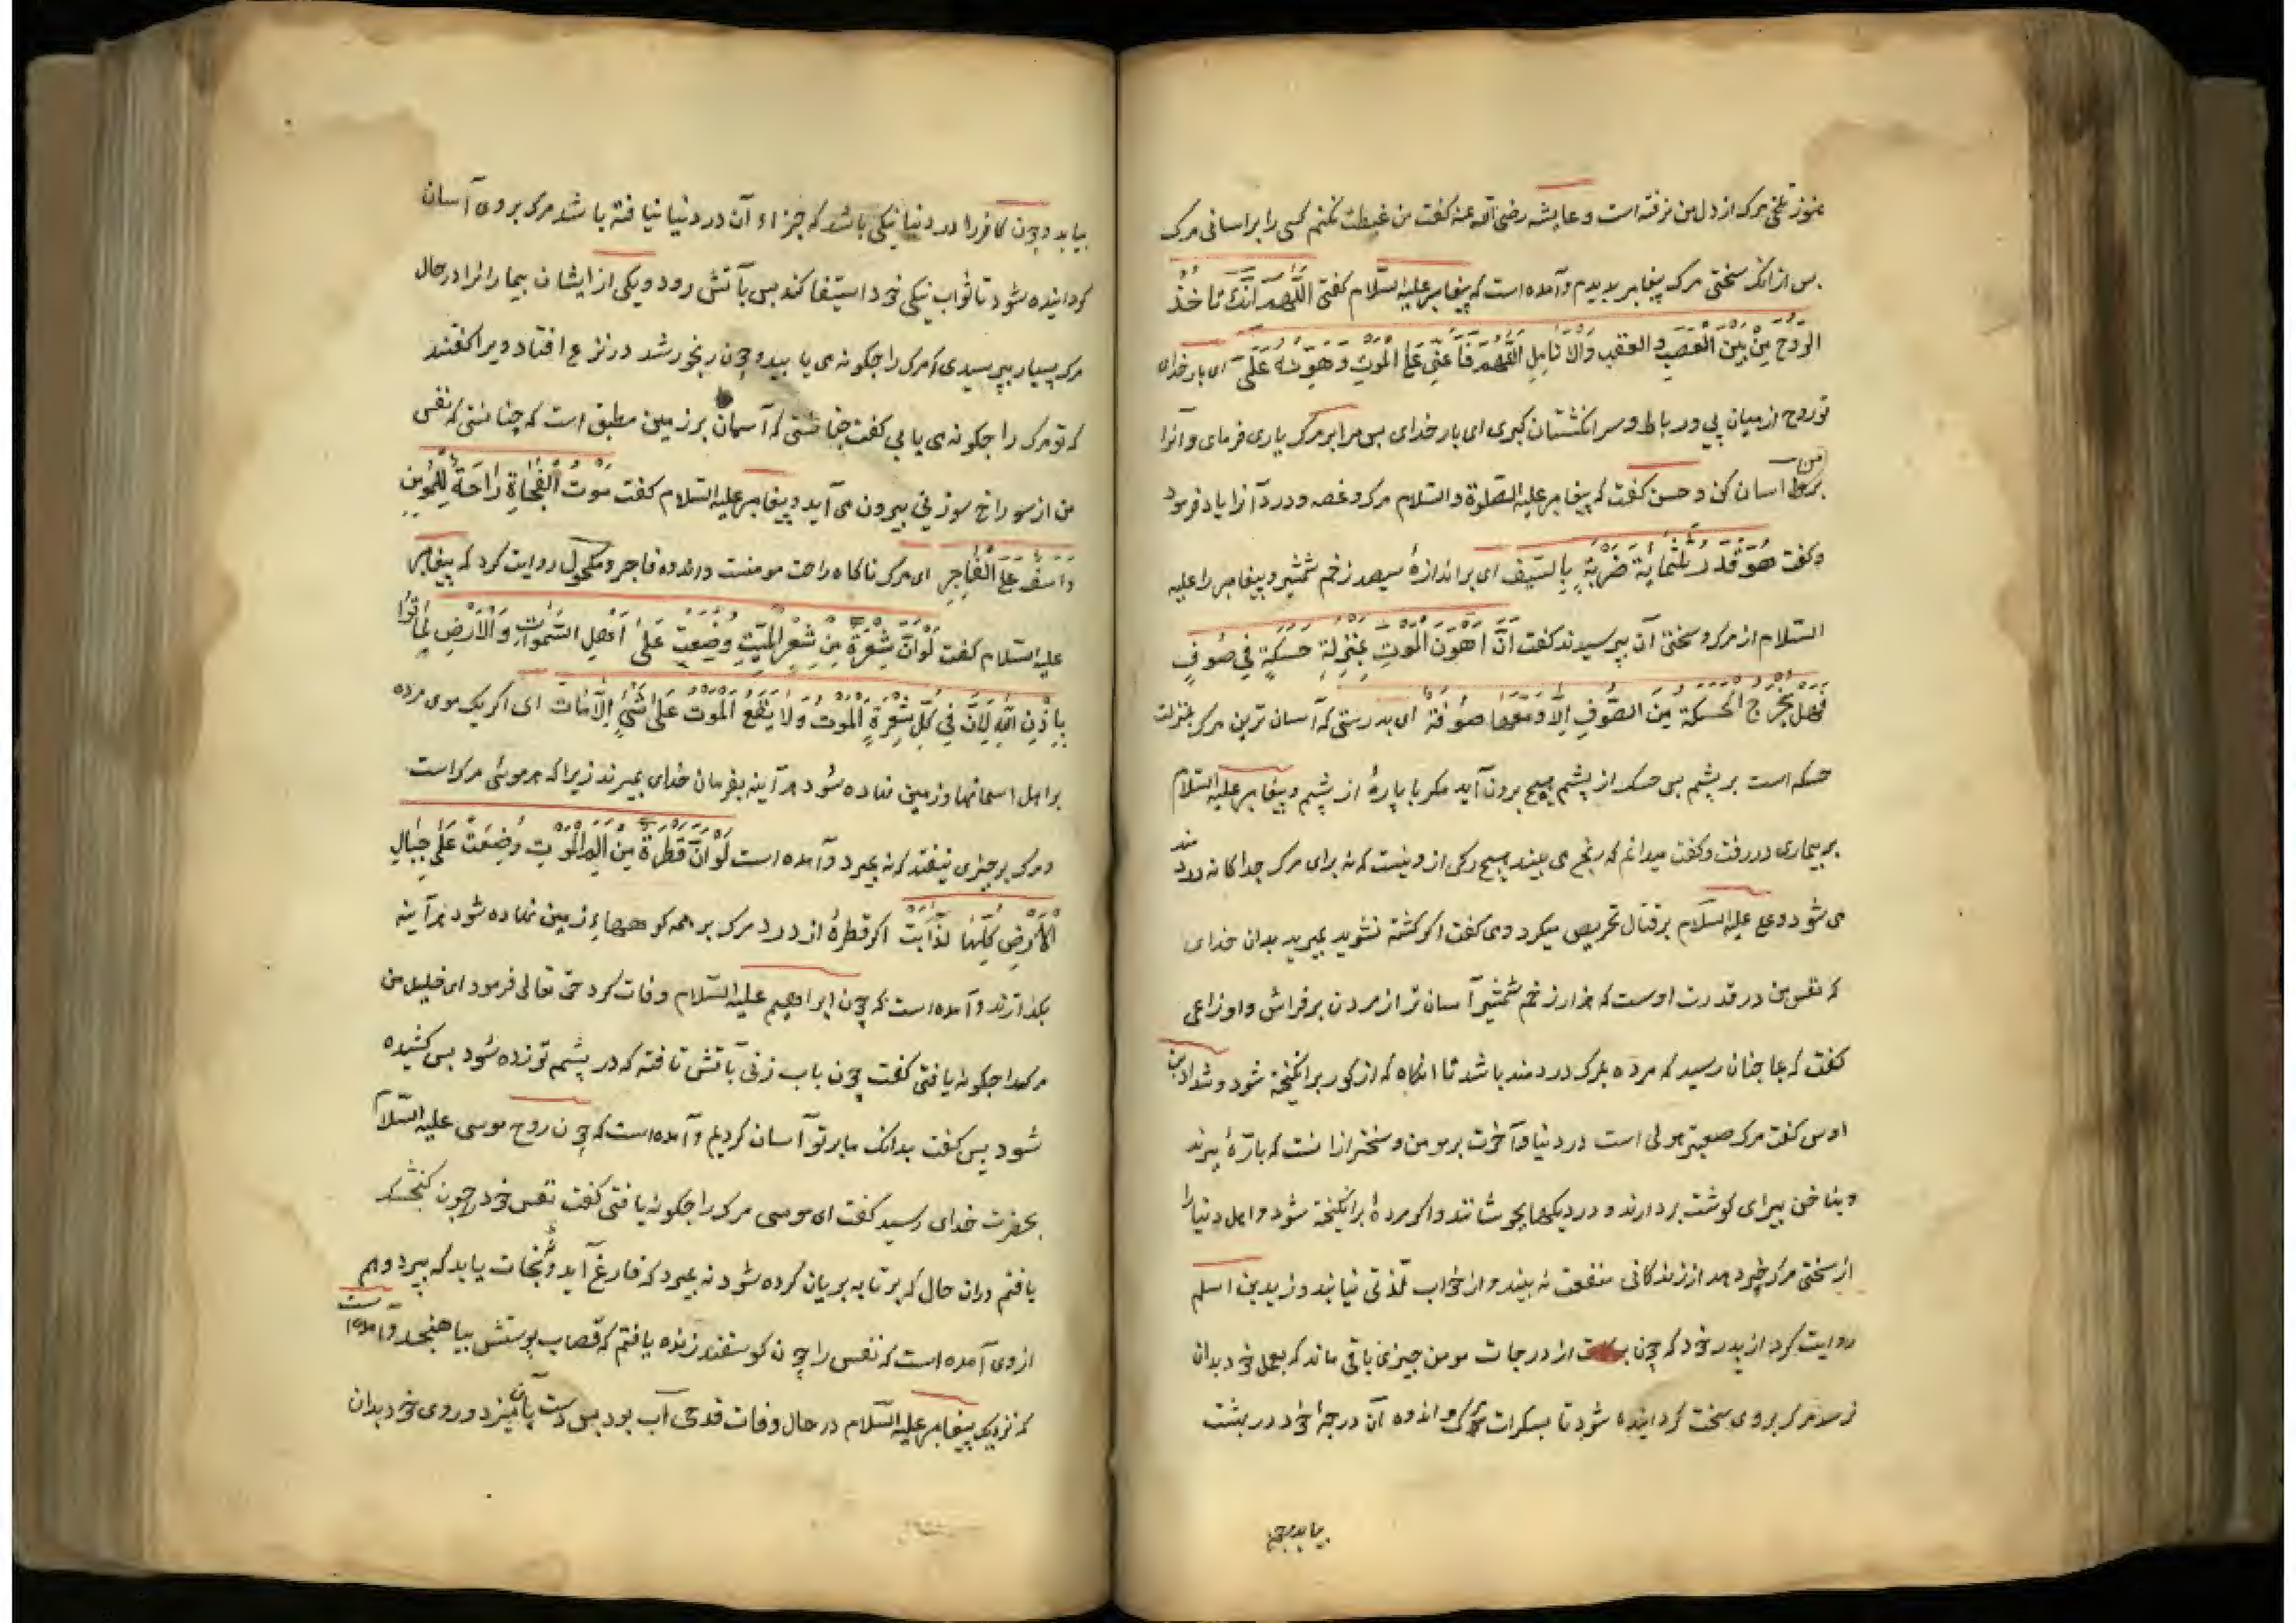 هنوز تلخی مرک از دل من نرفته است و عایشه رضی الله عنه کفت من غبطت نکنم کسی را بر اسانی مرک
بس از انک سختی مرک پیغامبر بدیدم و آمده است که پیغامبر علیه السّلام کفتی اَللّهُمَّ اِنَّکَ تَاخُذُ
الرُّوحَ مِنْ بَیْنِ الْعَصَبِ والعقب وَالْاَنَامِلِ اَللّهُمَّ فَاَعِنِّی عَلَی الْمَوْتِ وَهَوِّنْهُ عَلَیَّ ای بار خدای
تو روح از میان پی و رباط و سر انکشتان کیری ای بار خدای بس مرا بر مرک یاری فرمای و آنرا
بر من آسان کن و حسن کفت که پیغامبر علیه الصّلوة والسّلام مرک و غصه و درد آنرا یاد فرمود
و کفت هُوَ قَدْرُ ثَلٰثَمِایَةِ ضَرْبَةٍ بِالسَّیْفِ ای بر اندازهٔ سیصد زخم شمشیر و پیغامبر را علیه
السّلام از مرک و سختی آن پرسیدند کفت اِنَّ اَهْوَنَ الْمَوْتِ بِمَنْزِلَةِ حَسَکَةٍ فِی صُوفٍ
فَهَلْ یَخْرُجُ الْحَسَکَةُ مِنَ الصُّوفِ اِلَّا وَمَعَهَا صُوفَةٌ ای بدرستی که آسان ترین مرک بمنزلت
حسکه است بر پشم بس حسک از پشم هیچ برون آید مکر با پارهٔ از پشم و پیغامبر علیه السّلام
بر بیماری در رفت و کفت میدانم که رنج می بیند هیچ رکی ازو نیست که نه برای مرک جداکانه درد مند
می شود و علی علیه السلام بر قتال تحریص میکرد و می کفت اکر کشته نشوید بمیرید بدان خدای
که نفس من در قدرت اوست که هزار زخم شمشیر آسان تر از مردن بر فراش و اوزاعی
کفت که بما جنان رسید که مرده بمرک دردمند باشد تا انکاه که از کور برانکیخته شود و شداد بن
اوس کفت مرک صعبتر هولی است در دنیا و آخرت بر مومن و سختر از انست که بارّهٔ ببرند
و بناخن پیرای کوشت بردارند و در دیکها بجوشانند و اکر مردهٔ برانکیخته شود و اهل دنیا را
از سختی مرک خبر دهد از زندکانی منفعت نه بیند و از خواب لذّتی نیابند و زید بن اسلم
روایت کرد از پدر خود که چون از درجات مومن چیزی باقی ماند که بعمل خود بدان
نرسد مرک بر وی سخت کردانیده شود تا بسکرات مرک و اندوه آن درجهٔ خود در بهشت
بیابد و چون
بیابد و چون کافر را در دنیا نیکی باشد که جزاء آن در دنیا نیافته باشد مرک بر وی آسان
کردانیده شود تا ثواب نیکی خود استیفا کند بس بآتش رود و یکی از ایشان بیمارانرا در حال
مرک بسیار بپرسیدی که مرک را جکونه می یابید و چون رنجور شد در نزع افتاد ویرا کفتند
که تو مرک را جکونه می یابی کفت جنانستی که آسمان بر زمین مطبق است که چنانستی که نفس
من از سوراخ سوزنی بیرون می آید و پیغامبر علیه السّلام کفت مَوْتُ الْفُجَاةِ رَاحَةٌ لِلْمُؤْمِنِ
وَاَسَفٌ عَلَی الْفَاجِرِ ای مرک ناکاه راحت مومنست و اندوه فاجر و مکحول روایت کرد که پیغامبر
علیه السّلام کفت لَوْاَنَّ شَعْرَةً مِنْ شَعْرِ الْمَیِّتِ وُضِعَتْ عَلَی اَهْلِ السَّمٰوَاتِ وَالْاَرْضِ لَمَاتُوا
بِاِذْنِ اللّهِ لِاَنَّ فِی کُلِّ شَعْرَةٍ الْمَوْتُ وَلَا یَقَعُ الْمَوْتُ عَلَی شَیْءٍ اِلَّا مَاتَ ای اکر یک موی مرده
بر اهل اسمانها و زمین نهاده شود هر آینه بفرمان خدای بمیرند زیرا که هر موئی مرک است
و مرک بر چیزی نیفتد که نه بمیرد و آمده است لَوْاَنَّ قَطْرَةً مِنْ اَلَمِ الْمَوْتِ وُضِعَتْ عَلَی جِبَالِ
الْاَرْضِ کُلِّهَا لَذَابَتْ اکر قطرهٔ از درد مرک بر همه کوههاء زمین نهاده شود هر آینه
بکدازند و آمده است که چون ابراهیم علیه السّلام وفات کرد حق تعالی فرمود ای خلیل من
مرک را جکونه یافتی کفت چون باب زنی بآتش تافته که در پشم تر زده شود بس کشیده
شود بس کفت بدانک ما بر تو آسان کردیم و آمده است که چون روح موسی علیه السّلام
بحضرت خدای رسید کفت ای موسی مرک را جکونه یافتی کفت نفس خود را چون کنجشک
یافتم دران حال که بر تابه بریان کرده شود نه بمیرد که فارغ آید و نه نجات یابد که بپرد و هم
از وی آمده است که نفس را چون کوسفند زنده یافتم که قصاب پوستش بیاهنجد و آمده است
که نزدیک پیغامبر علیه السّلام در حال وفات قدحی آب بود بس دست بآن میزد و روی خود بدان